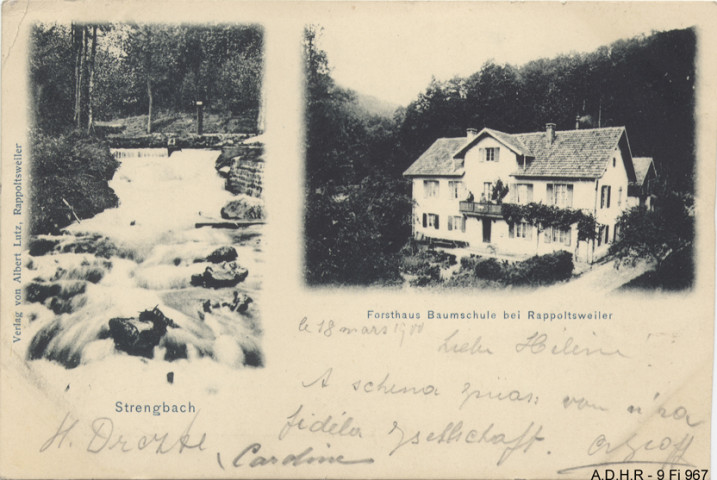 Verlag von Albert Lutz, Rappoltsweiler
Forsthaus Baumschule bei Rappoltsweiler
Strengbach
le 18 mars 1900
Liebe Hélène!
A schena von
fidéla Gsellschaft.
H.
Caroline
A.D.H.R - 9 Fi 967